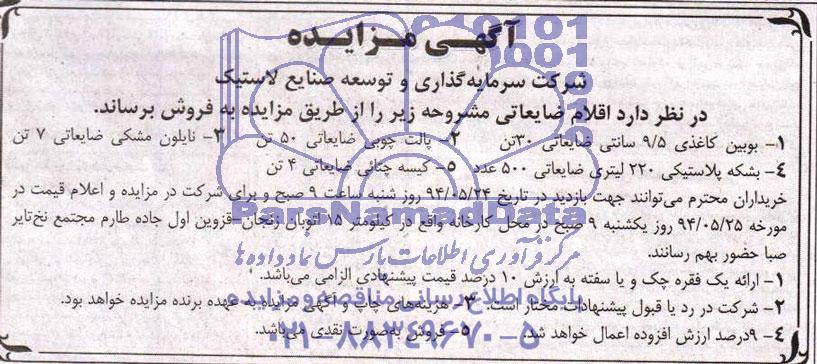 آگهی مزایده
شرکت سرمایه‌گذاری و توسعه صنایع لاستیک
در نظر دارد اقلام ضایعاتی مشروحه زیر را از طریق مزایده به فروش برساند.
۱- بوبین کاغذی ۹/۵ سانتی ضایعاتی ۳۰تن ۲- پالت چوبی ضایعاتی ۵۰ تن ۳- نایلون مشکی ضایعاتی ۷ تن
۴- بشکه پلاستیکی ۲۲۰ لیتری ضایعاتی ۵۰۰ عدد ۵- کیسه چتائی ضایعاتی ۴ تن
خریداران محترم می‌توانند جهت بازدید در تاریخ ۹۴/۰۵/۲۴ روز شنبه ساعت ۹ صبح و برای شرکت در مزایده و اعلام قیمت در
مورخه ۹۴/۰۵/۲۵ روز یکشنبه ۹ صبح در محل کارخانه واقع در کیلومتر ۱۵ اتوبان زنجان-قزوین اول جاده طارم مجتمع نخ‌تایر
صبا حضور بهم رسانند.
۱- ارائه یک فقره چک و یا سفته به ارزش ۱۰ درصد قیمت پیشنهادی الزامی می‌باشد.
۲- شرکت در رد یا قبول پیشنهادات مختار است. ۳- هزینه‌های چاپ و آگهی مزایده به عهده برنده مزایده خواهد بود.
۴- ۹درصد ارزش افزوده اعمال خواهد شد. ۵- فروش به‌صورت نقدی می‌باشد.
ParsNamadData
مرکز فرآوری اطلاعات پارس نماد داده‌ها
پایگاه اطلاع رسانی مناقصه و مزایده
۰۲۱-۸۸۳۴۹۶۷۰-۵